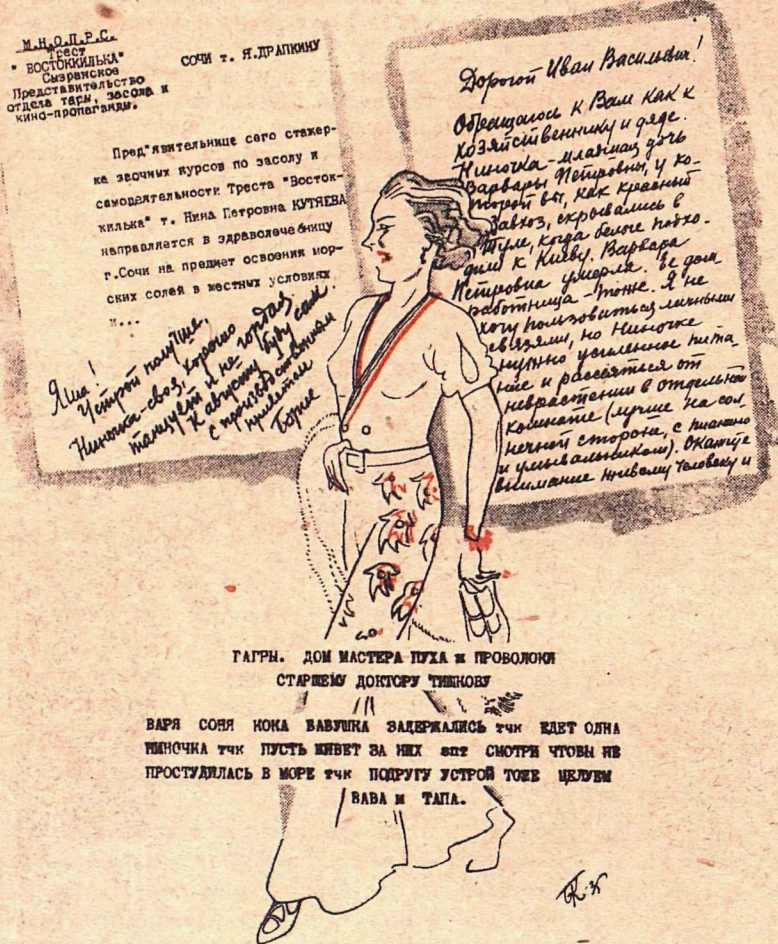 М.Н.О.П.Р.С.
Трест
"ВОСТОККИЛЬКА"
Сызранское
Представительство
отдела тары, засола и
кино-пропаганды.
СОЧИ т. Я.ДРАПКИНУ
Пред"явительнице сего стажер-
ка заочных курсов по засолу и
самодеятельности Треста "Восток-
килька" т. Нина Петровна КУТЯЕВА
направляется в здраволечебницу
г.Сочи на предмет освоения мор-
ских солей в местных условиях
и...
Яша!
Устрой получше,
Ниночка-своя, хорошо
танцует и не гордая
К августу буду сам.
С производственным
приветом
Борис
Дорогой Иван Васильевич!
Обращаюсь к Вам как к
хозяйственнику и дяде.
Ниночка-младшая дочь
Варвары Петровны, у ко-
торой вы, как красный
завхоз, скрывались в
Туле, когда белые подхо-
дили к Киеву. Варвара
Петровна умерла. Ее дом
работница - тоже. Я не
хочу пользоваться личными
связями, но Ниночке
нужно усиленное пита-
ние и рассеяться от
неврастении в отдельной
комнате (лучше на сол
нечной стороне, с пианино
и умывальником). Окажите
внимание живому человеку и
ГАГРЫ. ДОМ МАСТЕРА ПУХА и ПРОВОЛОКИ
СТАРШЕМУ ДОКТОРУ ТИШКОВУ
ВАРЯ СОНЯ КОКА БАБУШКА ЗАДЕРЖАЛИСЬ тчк ЕДЕТ ОДНА
НИНОЧКА тчк ПУСТЬ ЖИВЕТ ЗА НИХ зпт СМОТРИ ЧТОБЫ НЕ
ПРОСТУДИЛАСЬ В МОРЕ тчк ПОДРУГУ УСТРОЙ ТОЖЕ ЦЕЛУЕМ
ВАВА и ТАПА.